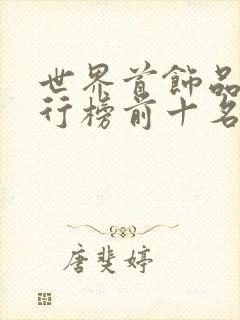 世界首飾品
行榜前十名
唐斐婷